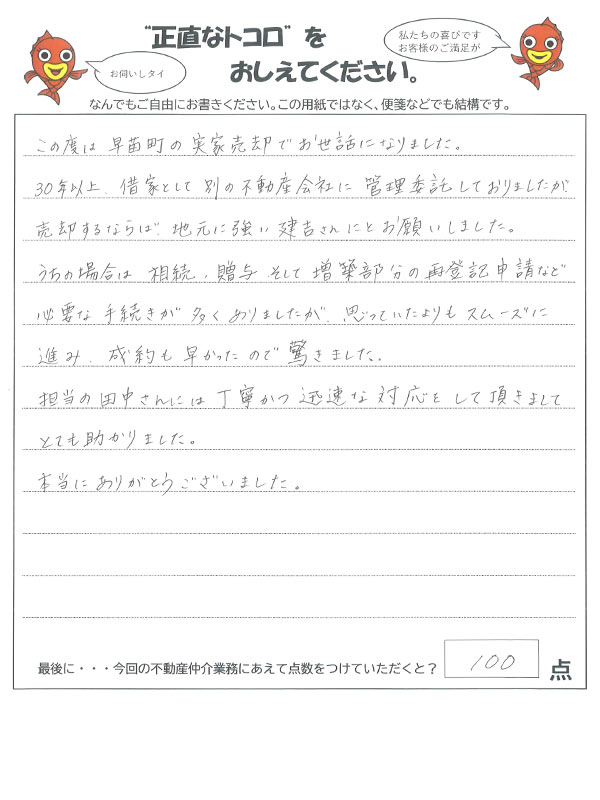 "正直なトコロ"を
おしえてください。
お伺いしタイ
私たちの喜びです
お客様のご満足が
なんでもご自由にお書きください。この用紙ではなく、便箋などでも結構です。
この度は 早苗町の実家売却でお世話になりました。
30年以上、借家として別の不動産会社に 管理委託しておりましたが、
売却するならば、地元に強い 建吉さんにとお願いしました。
うちの場合は 相続、贈与 そして 増築部分の再登記申請など
必要な手続きが 多くありましたが、思っていたよりも スムーズに
進み、成約も早かったので驚きました。
担当の田中さんには丁寧かつ迅速な対応をして頂きまして
とても助かりました。
本当にありがとうございました。
最後に・・・今回の不動産仲介業務にあえて点数をつけていただくと？ 100 点